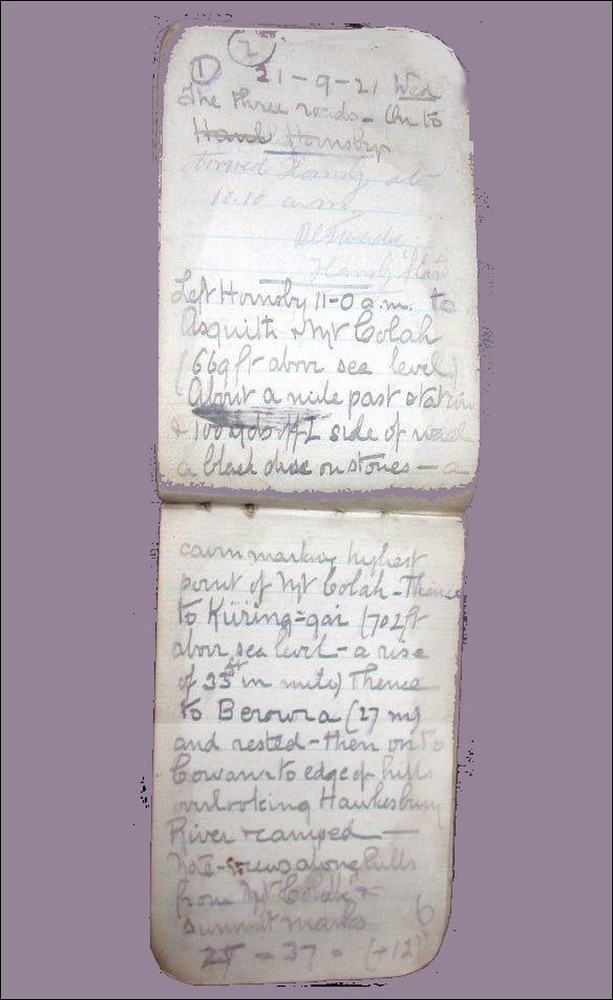 2
1 21-9-21 Wed
The three roads - On to
Hornsby
at
10.10 a.m.
Left Hornsby 11-0 a.m. to
Asquith & Mt Colah
(669 ft above sea level)
About a mile past station
& 100 yds side of road
a black disc on stones - a
cairn marking highest
point of Mt Colah - Thence
to Kuring-gai (702 ft
above sea level - a rise
of 33 ft in mile) Thence
to Berowra (27 m)
and rested - then on to
Cowan & to edge of hills
overlooking Hawkesbury
River & camped -
Note - views along hills
from Mt Colah &
summit marks 6
25 - 37 = (+12)